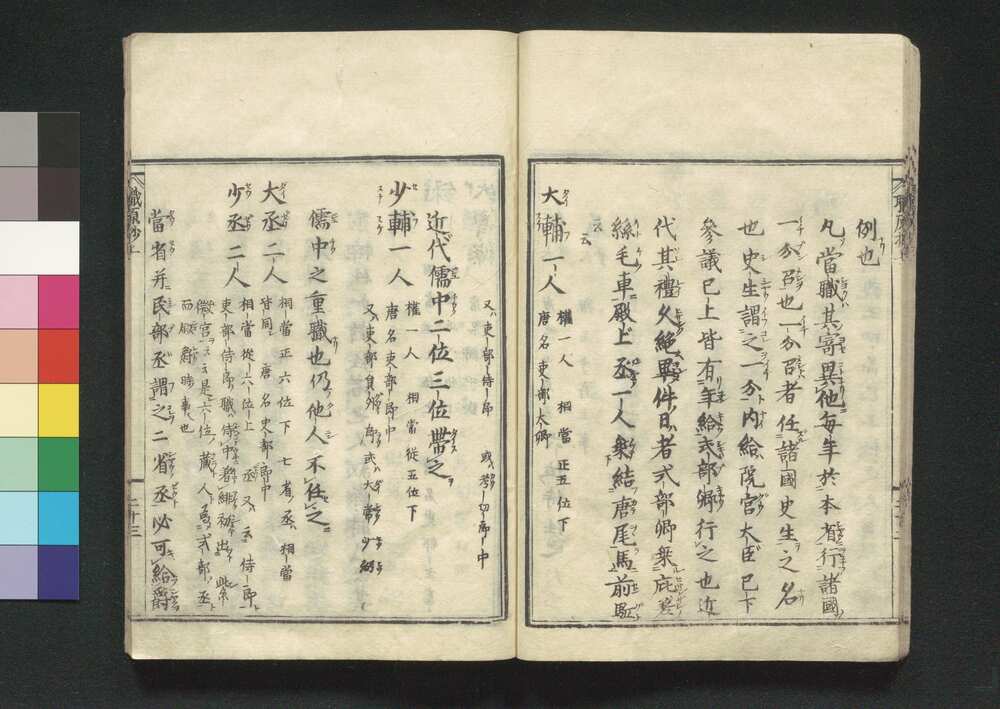 例也
凡當職其寄異他每年於本省行諸國
一分召也一分召者任諸國史生之名
也史生謂之一分內給院宮大臣已下
參議已上皆有年給式部卿行之也近
代其禮久絶畢件日者式部卿乗庇差
絲毛車殿上丞一人乗結唐尾馬前駈
云云
大輔一人 權一人 相當正五位下
唐名吏部大卿
又吏部侍郎 或考功郎中
近代儒中二位三位帶之
少輔一人 權一人 相當從五位下
唐名吏部郎中
又吏部員外郎 或大常少卿
儒中之重職也仍他人不任之
大丞二人 相當正六位下 七省丞相當
皆同 唐名吏部郎中
少丞二人 相當從六位上 丞又云侍郎
吏部侍郎職侍中著緋初出紫
微宮ヲ云云是六位藏人爲式部丞
而敍爵時事也
當省并民部丞謂之二省丞必可給爵
職原抄上
二十三